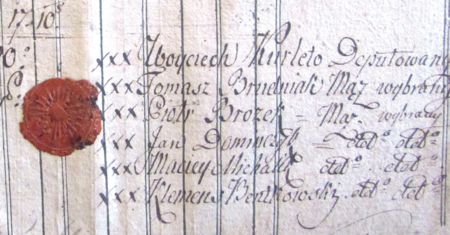 17.10ˢ
xxx Woyciech Kurleto Deputowany
xxx Tomasz Brudniak Mąz wybrany
xxx Piotr Brozek = Mąz. wybrany
xxx Jan Dominczyk = dtdº dtdº
xxx Maciey Michalik dtdº dtdº
xxx Klemens Bentkowski dtdº dtdº